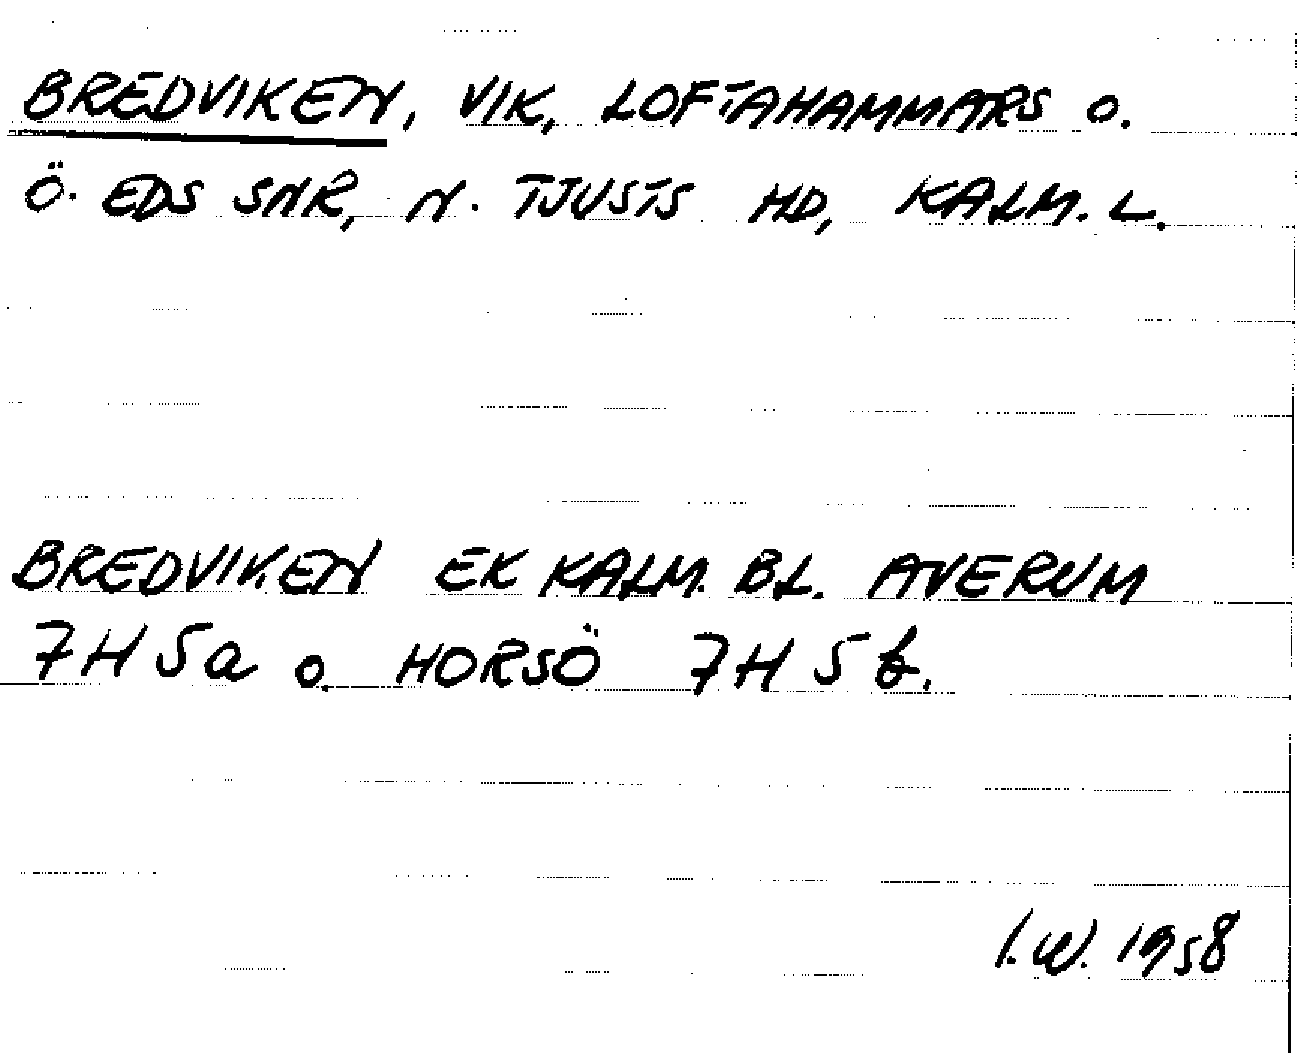 BREDVIKEN, VIK, LOFTAHAMMARS O.
Ö. EDS SNR, N. TJUSTS HD, KALM. L.
BREDVIKEN EK KALM. BL. AVERUM
7H 5a o. HORSÖ 7H 5b.
I.W. 1958